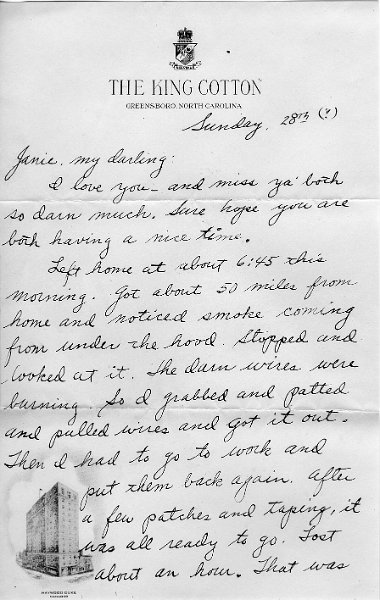 THE KING COTTON
GREENSBORO, NORTH CAROLINA
Sunday, 28th (?)
Janie, my darling:
I love you - and miss ya' both
so darn much. Sure hope you are
both having a nice time.
Left home at about 6:45 this
morning. Got about 50 miles from
home and noticed smoke coming
from under the hood. Stopped and
looked at it. The darn wires were
burning. So I grabbed and patted
and pulled wires and got it out.
Then I had to go to work and
put them back again. After
a few patches and taping, it
was all ready to go. Lost
about an hour. That was